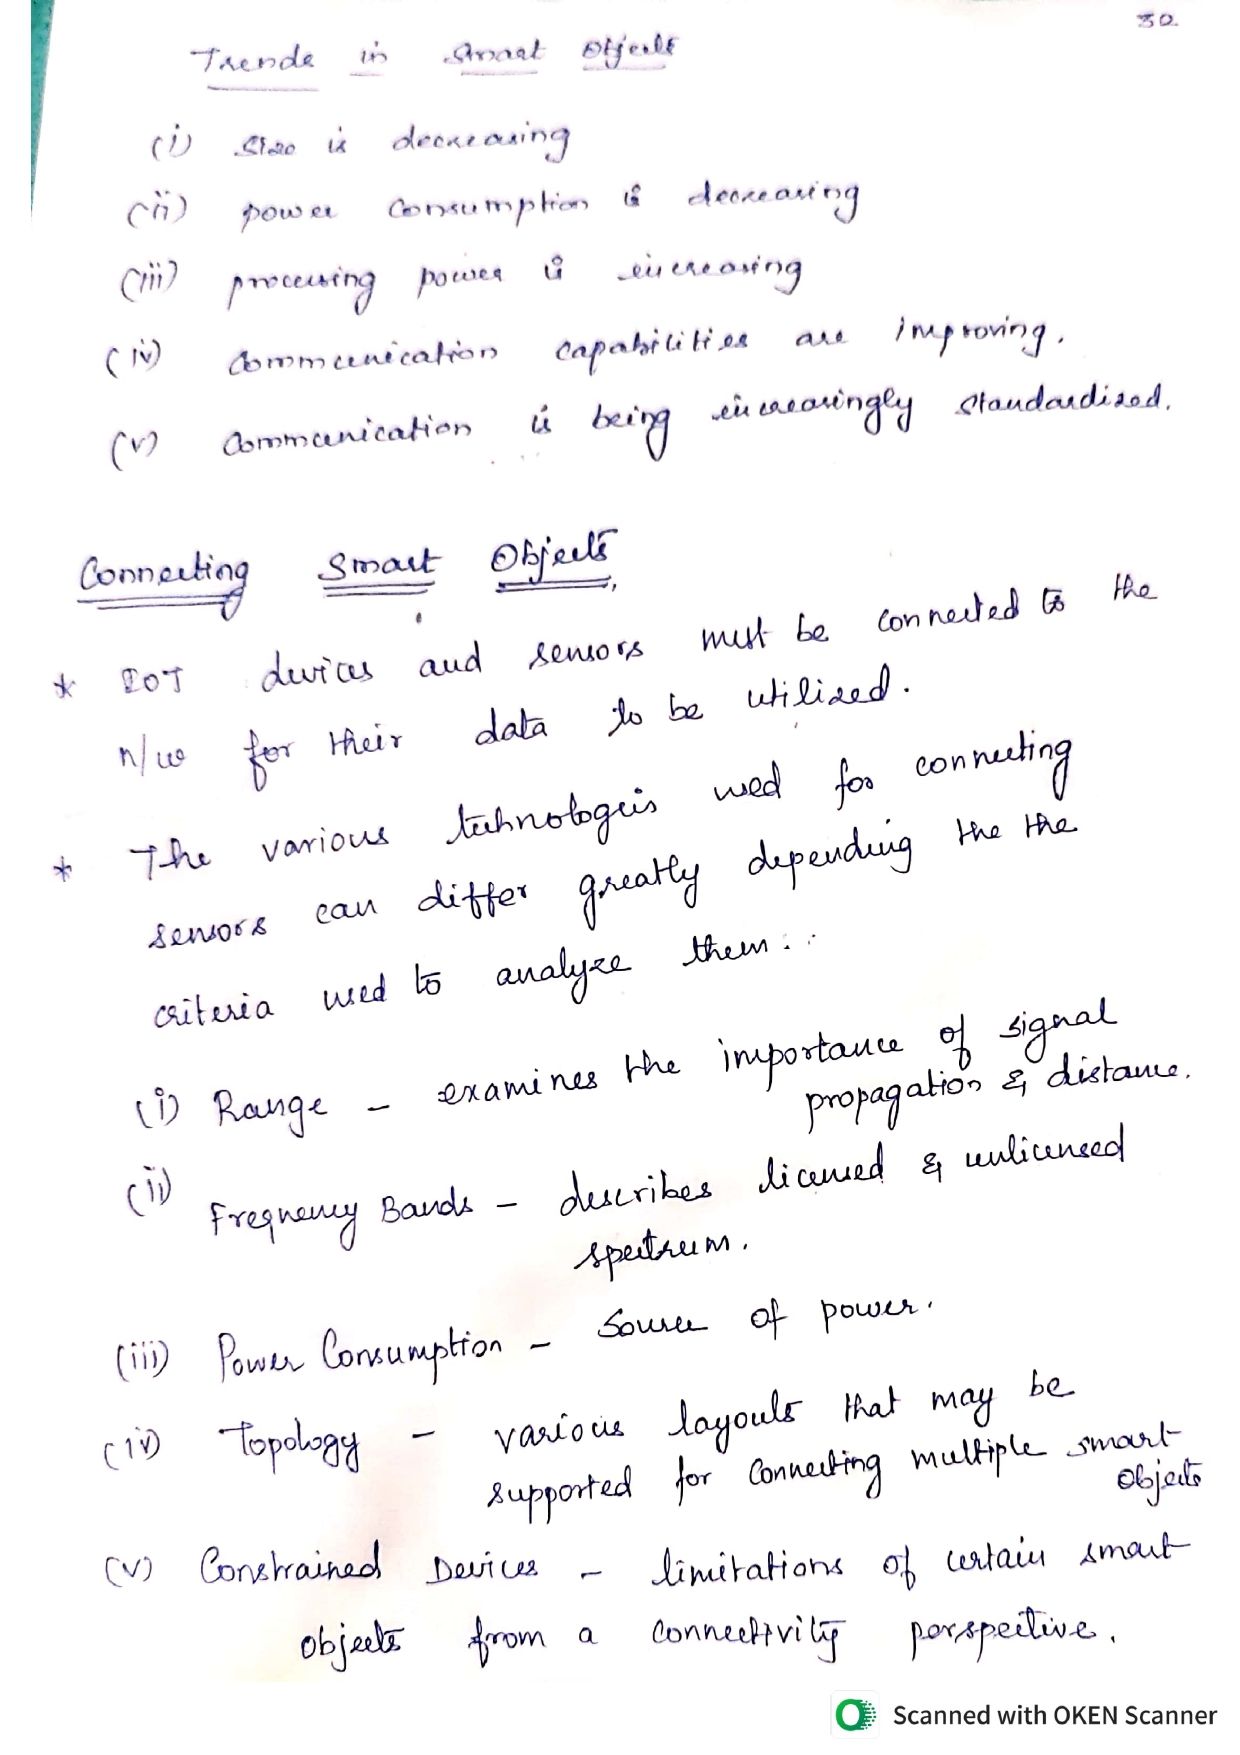 30.
Trends in Smart Objects
(i) Size is decreasing
(ii) power consumption is decreasing
(iii) processing power is increasing
(iv) Communication capabilities are improving.
(v) Communication is being increasingly standardized.
Connecting Smart Objects
* IOT devices and sensors must be connected to the
n/w for their data to be utilized.
* The various technologies used for connecting
sensors can differ greatly depending the the
criteria used to analyze them:
(i) Range - examines the importance of signal
propagation & distance.
(ii) Frequency Bands - describes licensed & unlicensed
spectrum.
(iii) Power Consumption - Source of power.
(iv) Topology - various layouts that may be
supported for connecting multiple smart
objects
(v) Constrained Devices - limitations of certain smart
objects from a connectivity perspective.
Scanned with OKEN Scanner